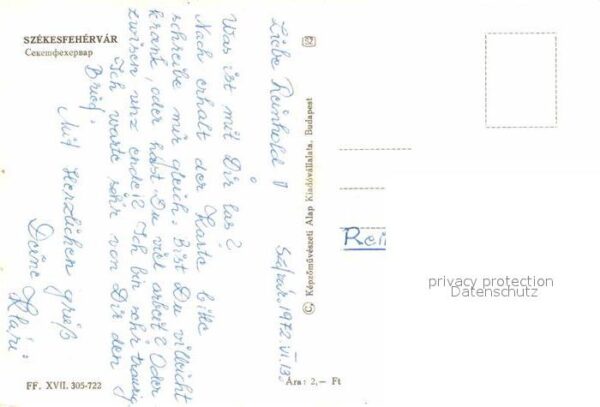 SZÉKESFEHÉRVÁR
Секешфехервар
Liebe Reinhold!
Szfvár. 1972. VI. 13.
Was ist mit Dir las?
Nach erhalt der Karte bitte
schreibe mir gleich. Bist Du villeicht
krank, oder hast Du viel arbeit? Oder
zwischen unz ende!? Ich bin sehr traurig,
Ich warte sehr von Dir den
Brief.
Mit Herzlichen grüß
Deine
Klári.
FF. XVII. 305-722
© Képzőművészeti Alap Kiadóvállalata, Budapest
Ára: 2,— Ft
Rei
privacy protection
Datenschutz